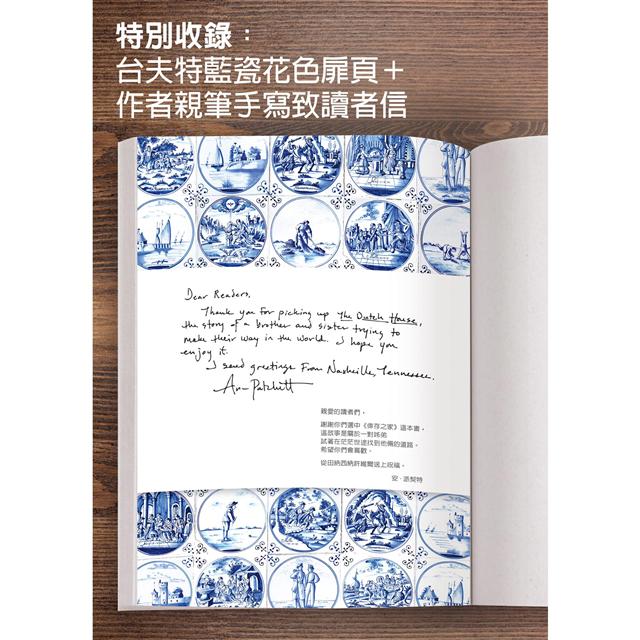 特別收錄：
台夫特藍瓷花色扉頁＋
作者親筆手寫致讀者信
Dear Readers,
Thank you for picking up The Dutch House,
the story of a brother and sister trying to
make their way in the world. I hope you
enjoy it.
I send greetings from Nashville, Tennessee.
Ann Patchett
親愛的讀者們，
謝謝你們選中《倖存之家》這本書，
這故事是關於一對姊弟
試著在茫茫世途找到他倆的道路。
希望你們會喜歡。
從田納西納許維爾送上祝福。
安．派契特